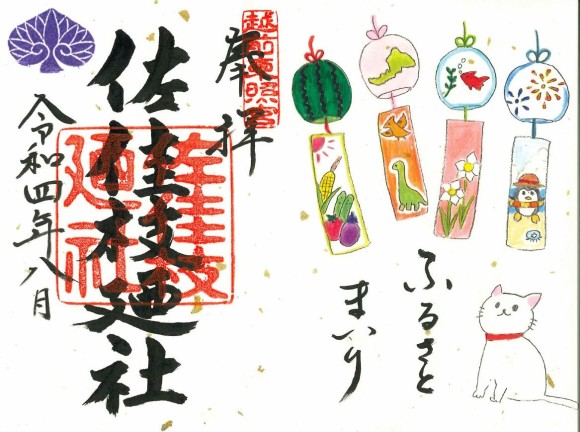 ふるさと
まいり
越前東照宮
奉拝
佐佳枝廼社
佐佳枝
廼社
令和四年八月